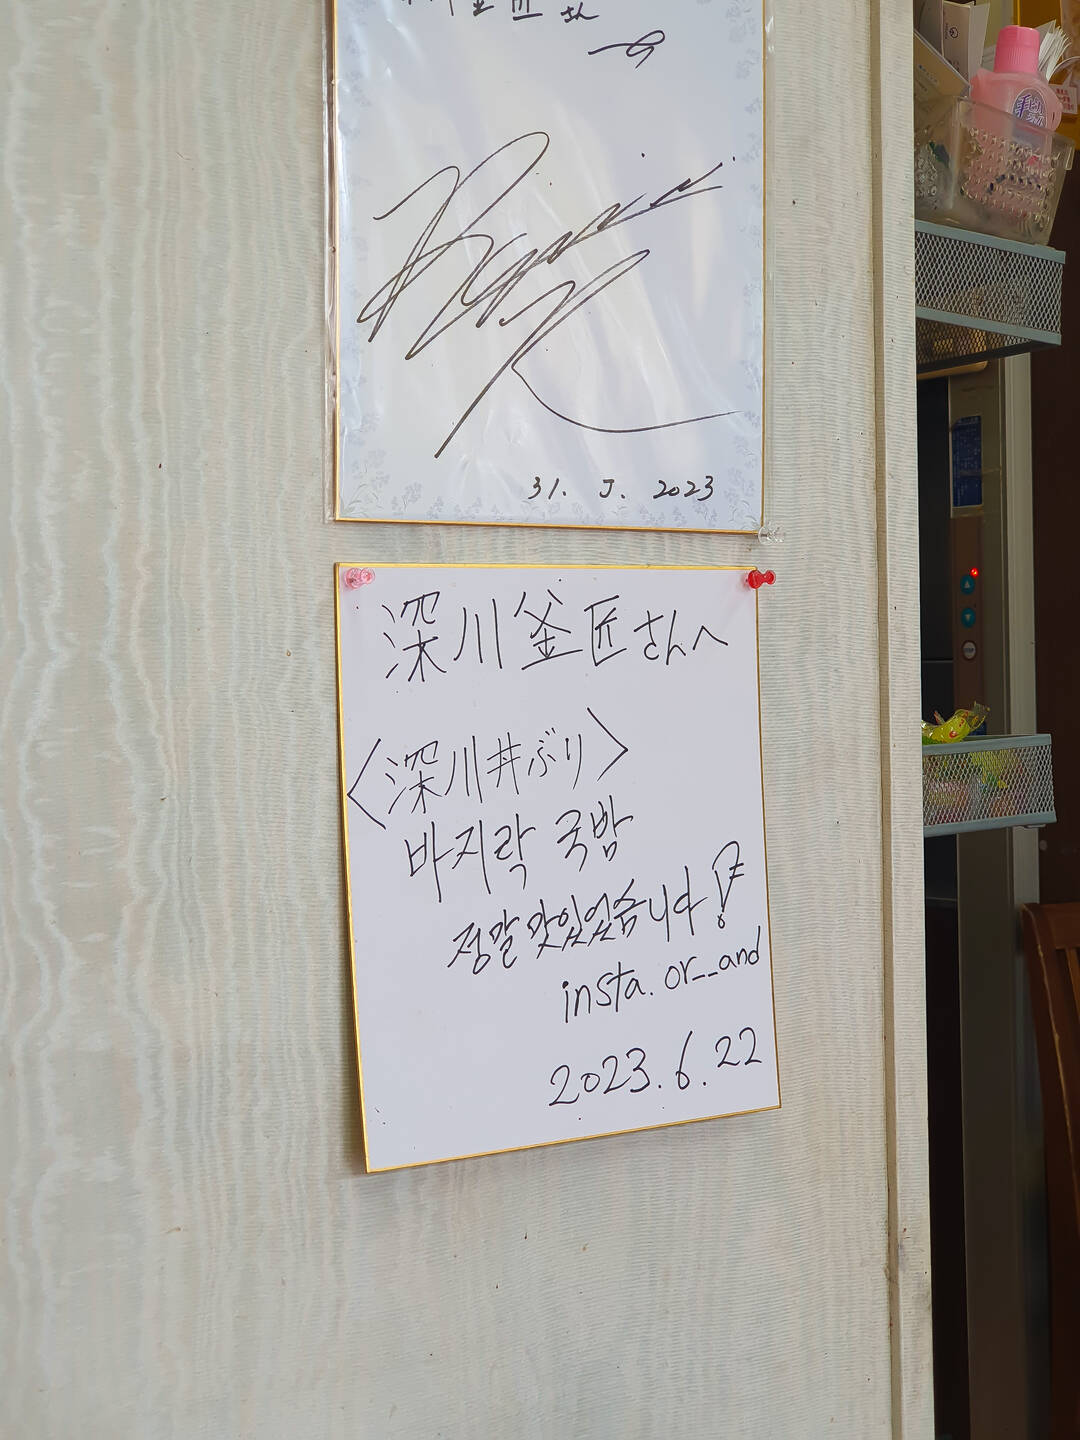 釜匠さん
へ
31. J. 2023
深川釜匠さんへ
〈深川井ぶり〉
바지락 국밥
정말 맛있었습니다!
insta. or__and
2023. 6. 22